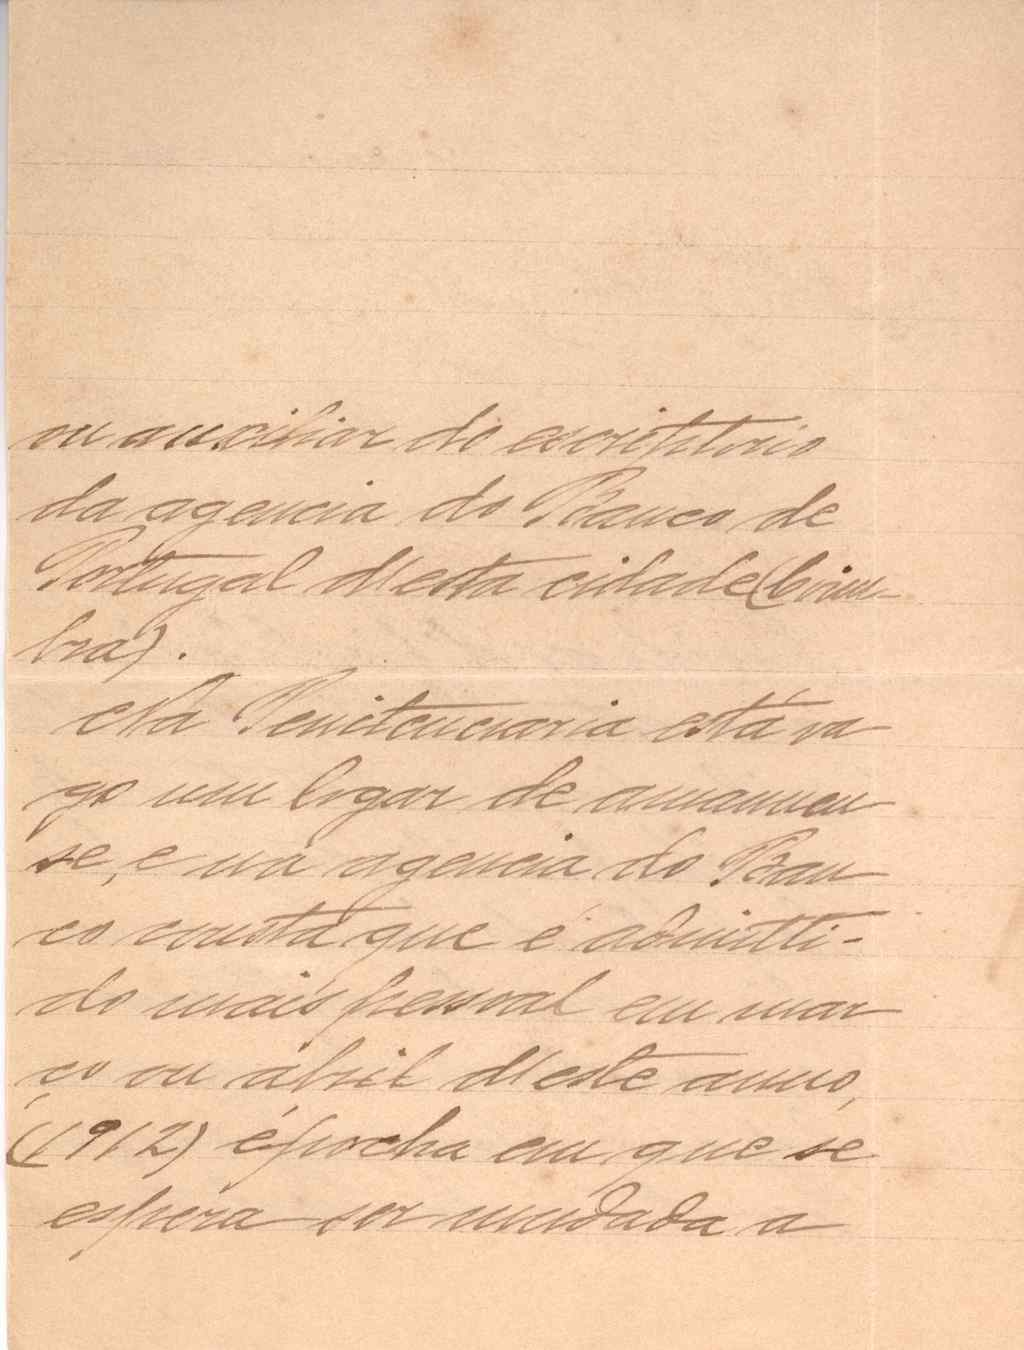 ou auxiliar do escriptorio
da agencia do Banco de
Portugal d'esta cidade (Coim-
bra).
Na Penitenciaria está va
go um logar de amanuen
se, e na agencia do Ban
co consta que é admitti-
do mais pessoal em mar
ço ou abril d'este anno,
(1912) épocha em que se
espera ser mudada a